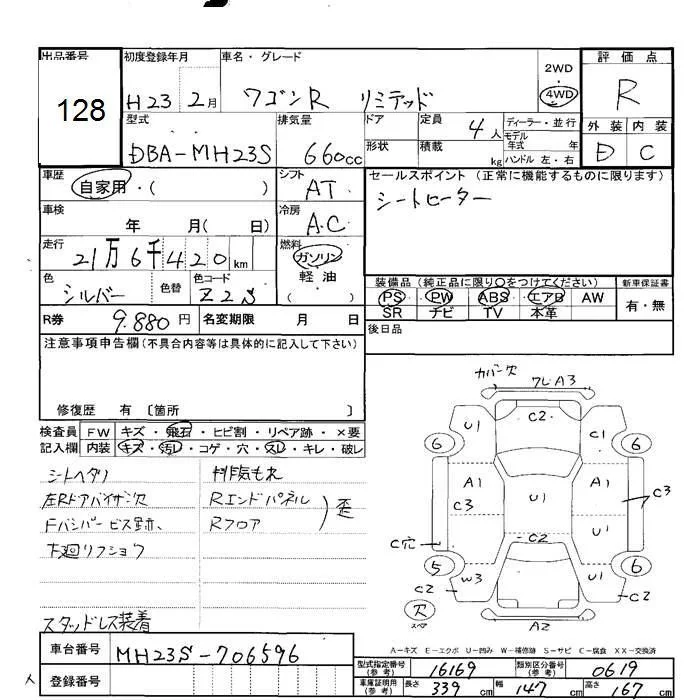 出品番号
128
初度登録年月
H23 2月
車名・グレード
ワゴンR リミテッド
2WD
4WD
評価点
R
型式
DBA-MH23S
排気量
660cc
ドア
形状
定員
4人
積載
kg
ディーラー・並行
モデル年式 年
ハンドル 左・右
外装 内装
D C
車歴
自家用・( )
シフト
AT
セールスポイント (正常に機能するものに限ります)
シートヒーター
車検
年 月( 日)
冷房
A.C
走行
21万6千420km
燃料
ガソリン
軽油
( )
色
シルバー
色替
色コード
Z2S
装備品 (純正品に限り○をつけてください)
PS PW ABS エアB AW
SR ナビ TV 本革
新車保証書
有・無
R券
9.880円
名変期限 月 日
後日品
注意事項申告欄(不具合内容等は具体的に記入して下さい)
修復歴 有 〔箇所 〕
検査員記入欄
FW キズ・飛石・ヒビ割・リペア跡・×要
内装 キズ・汚レ・コゲ・穴・スレ・キレ・破レ
シートヘタリ
左Rドアバイザー欠
下廻リフショク
スタッドレス装着
排気もれ
Rエンドパネル
Rフロア
歪
カバー欠
フレA3
C2
U1
C1
6
6
A1
A1
C3
U1
C3
U1
C穴
C2
5
6
W3
U1
C2
C2
欠
スペア
A2
A-キズ E-エクボ U-凹み W-補修跡 S-サビ C-腐食 XX-交換済
車台番号
MH23S-706596
登録番号
型式指定番号(参考)
16169
類別区分番号(参考)
0619
車庫証明用(参考)
長さ 339cm
幅 147cm
高さ 167cm
人